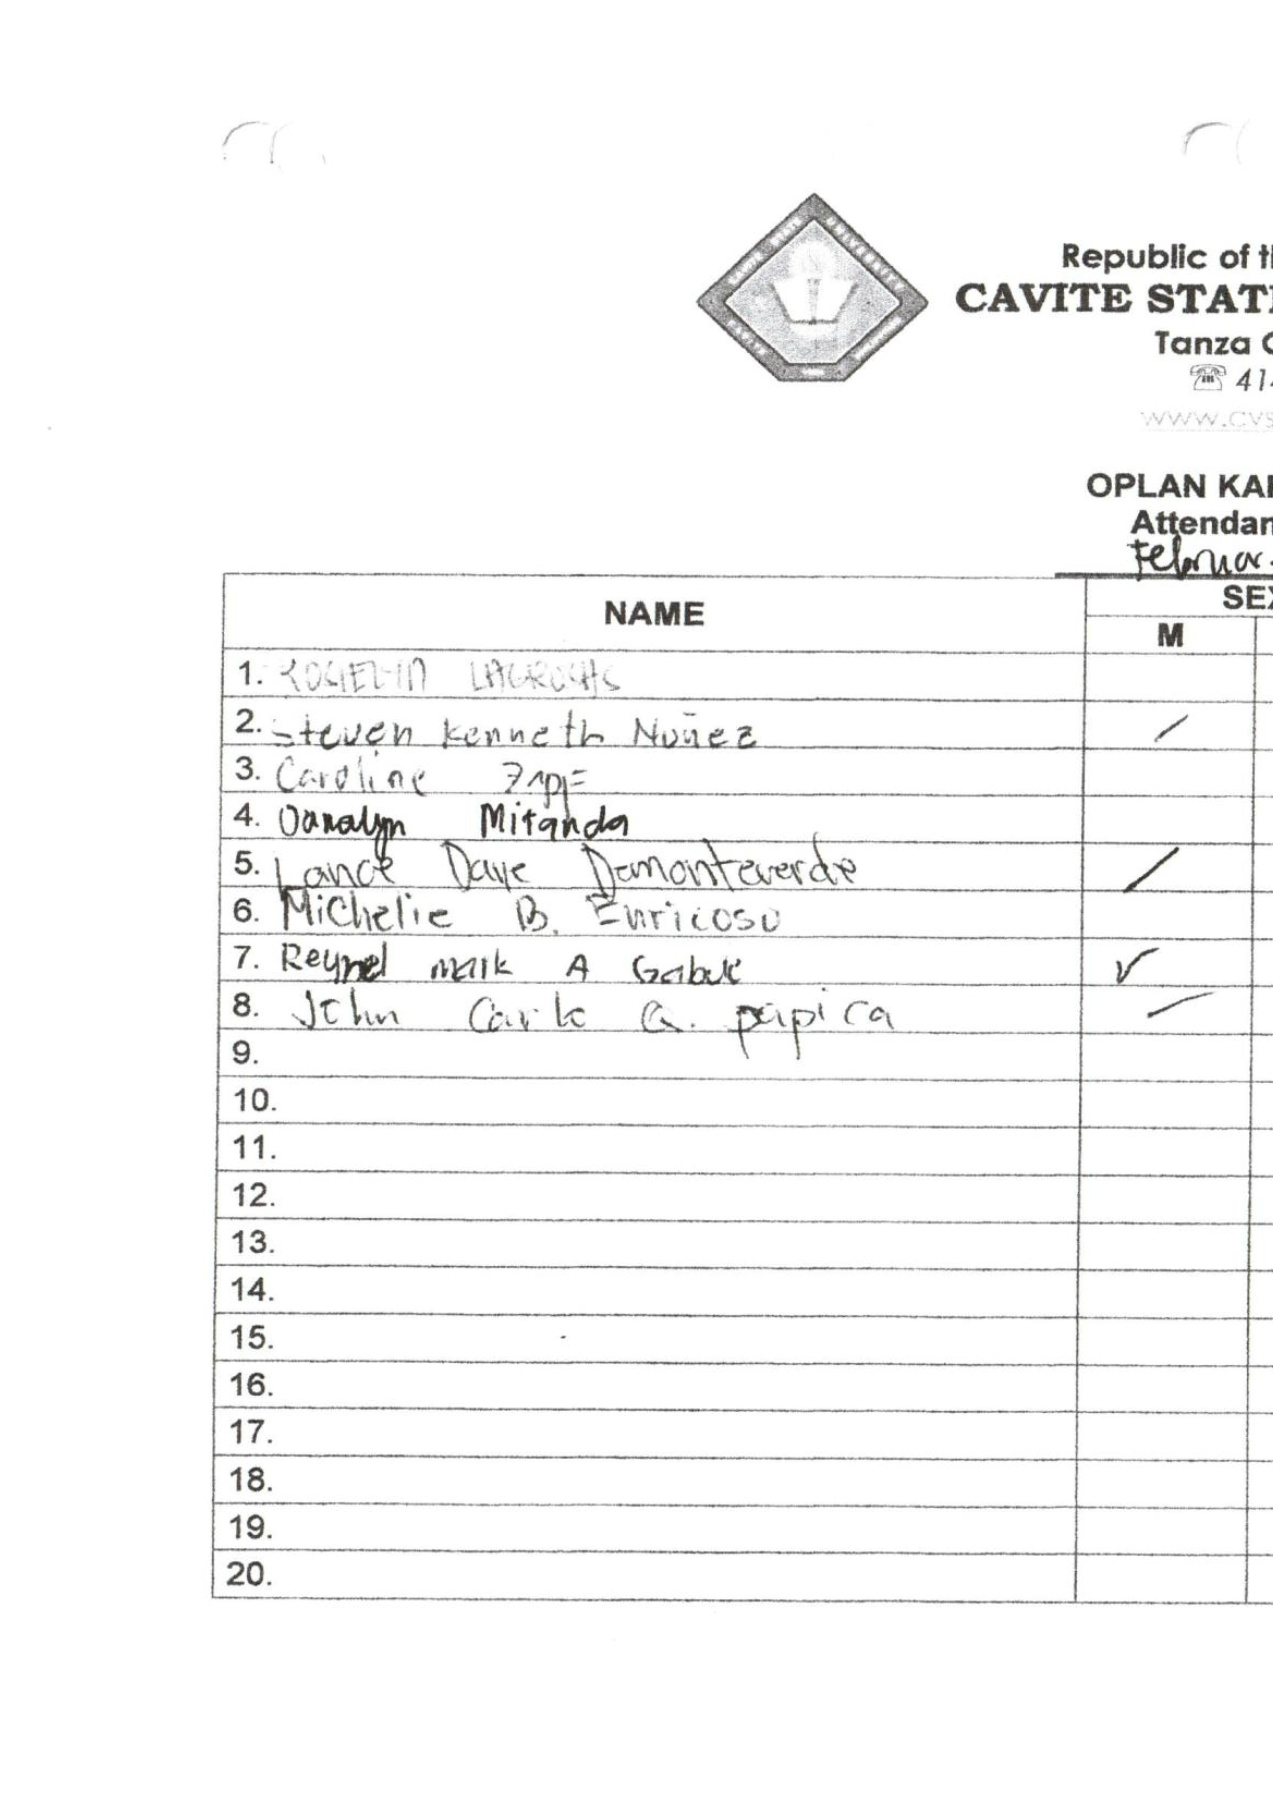 Republic of t
CAVITE STAT
Tanza C
☎ 414
www.cvs
OPLAN KA
Attendan
Februar
NAME
SEX
M
1.
2. Steven Kenneth Nuñez
3. Caroline
4. Miranda
5. Lance Dave Demonteverde
6. Michelle B. Enricoso
7. Reynel mark A
8. John Carlo Q. papica
9.
10.
11.
12.
13.
14.
15.
16.
17.
18.
19.
20.